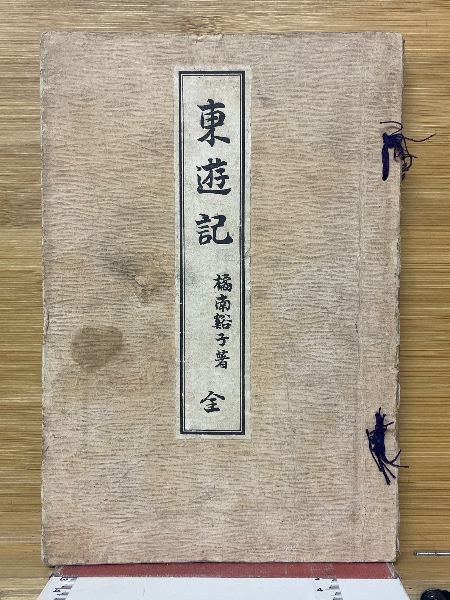 東遊記
橘南谿子著
全